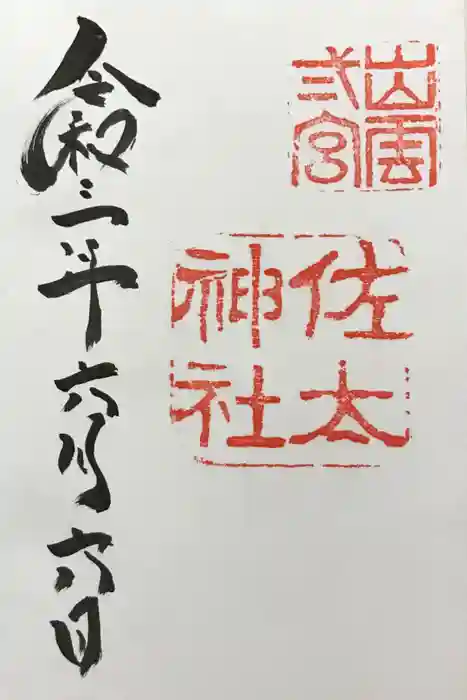 出雲
弐宮
佐太
神社
令和三年六月六日